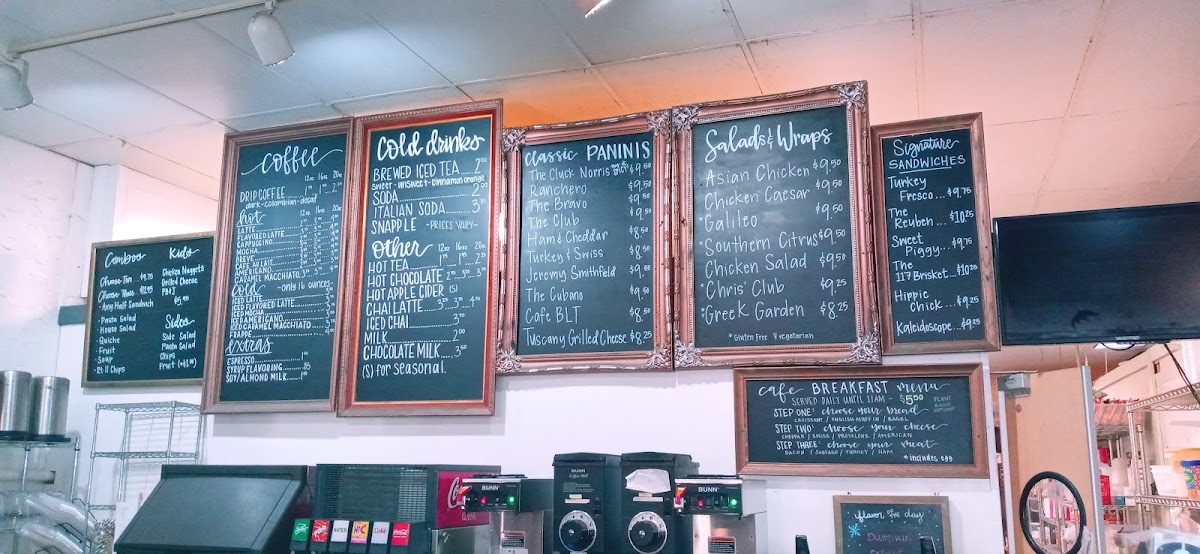 Combos
Choose Two ... $9.75
Any Half Sandwich
Pasta Salad
House Salad
Quiche
Fruit
Soup
Chips
Kids
Chicken Nuggets
Grilled Cheese
PB+J
Sides
Side Salad
Pasta Salad
Chips
Fruit
coffee
12oz 16oz 20oz
DRIP COFFEE
dark - colombian - decaf
hot
12oz 16oz 20oz
LATTE
FLAVORED LATTE
CAPPUCCINO
MOCHA
BREVE
CAFE AU LAIT
AMERICANO
CARAMEL MACCHIATO
cold -only 16 ounces-
ICED LATTE
ICED FLAVORED LATTE
ICED MOCHA
ICED AMERICANO
ICED CARAMEL MACCHIATO
FRAPPE
extras
ESPRESSO
SYRUP FLAVORING
SOY/ALMOND MILK
cold drinks
BREWED ICED TEA ... 2.00
sweet - unsweet - cinnamon orange
SODA ... 2.00
ITALIAN SODA ... 3.00
SNAPPLE -PRICES VARY-
other 12oz 16oz 20oz
HOT TEA
HOT CHOCOLATE
HOT APPLE CIDER (S)
CHAI LATTE
ICED CHAI
MILK ... 2.00
CHOCOLATE MILK ... 3.50
(S) for seasonal.
classic PANINIS
The Cluck Norris $9.50
Ranchero $9.50
The Bravo $9.50
The Club $9.50
Ham & Cheddar $8.50
Turkey & Swiss $8.50
Jeremy Smithfield $9.50
The Cubano $9.50
Cafe BLT $8.50
Tuscany Grilled Cheese $8.25
Salads & Wraps
Asian Chicken $9.50
Chicken Caesar $9.50
*Galileo $9.50
*Southern Citrus $9.50
Chicken Salad $9.50
*Chris' Club $9.25
*Greek Garden $8.25
*Gluten Free Vegetarian
Signature
SANDWICHES
Turkey
Fresco ... $9.75
The
Reuben ... $10.25
Sweet
Piggy ... $9.75
The
117 Brisket ... $10.25
Hippie
Chick ... $9.25
Kaleidoscope ... $9.25
cafe BREAKFAST menu
SERVED DAILY UNTIL 11AM - $5.50
STEP ONE: choose your bread
CROISSANT / ENGLISH MUFFIN / BAGEL
STEP TWO: choose your cheese
CHEDDAR / SWISS / PROVOLONE / AMERICAN
STEP THREE: choose your meat
BACON / SAUSAGE / TURKEY / HAM
*includes egg
flavor of the day
Pumpkin
BUNN
BUNN
BUNN
WATER
Coke
Coca-Cola
CLASSIC